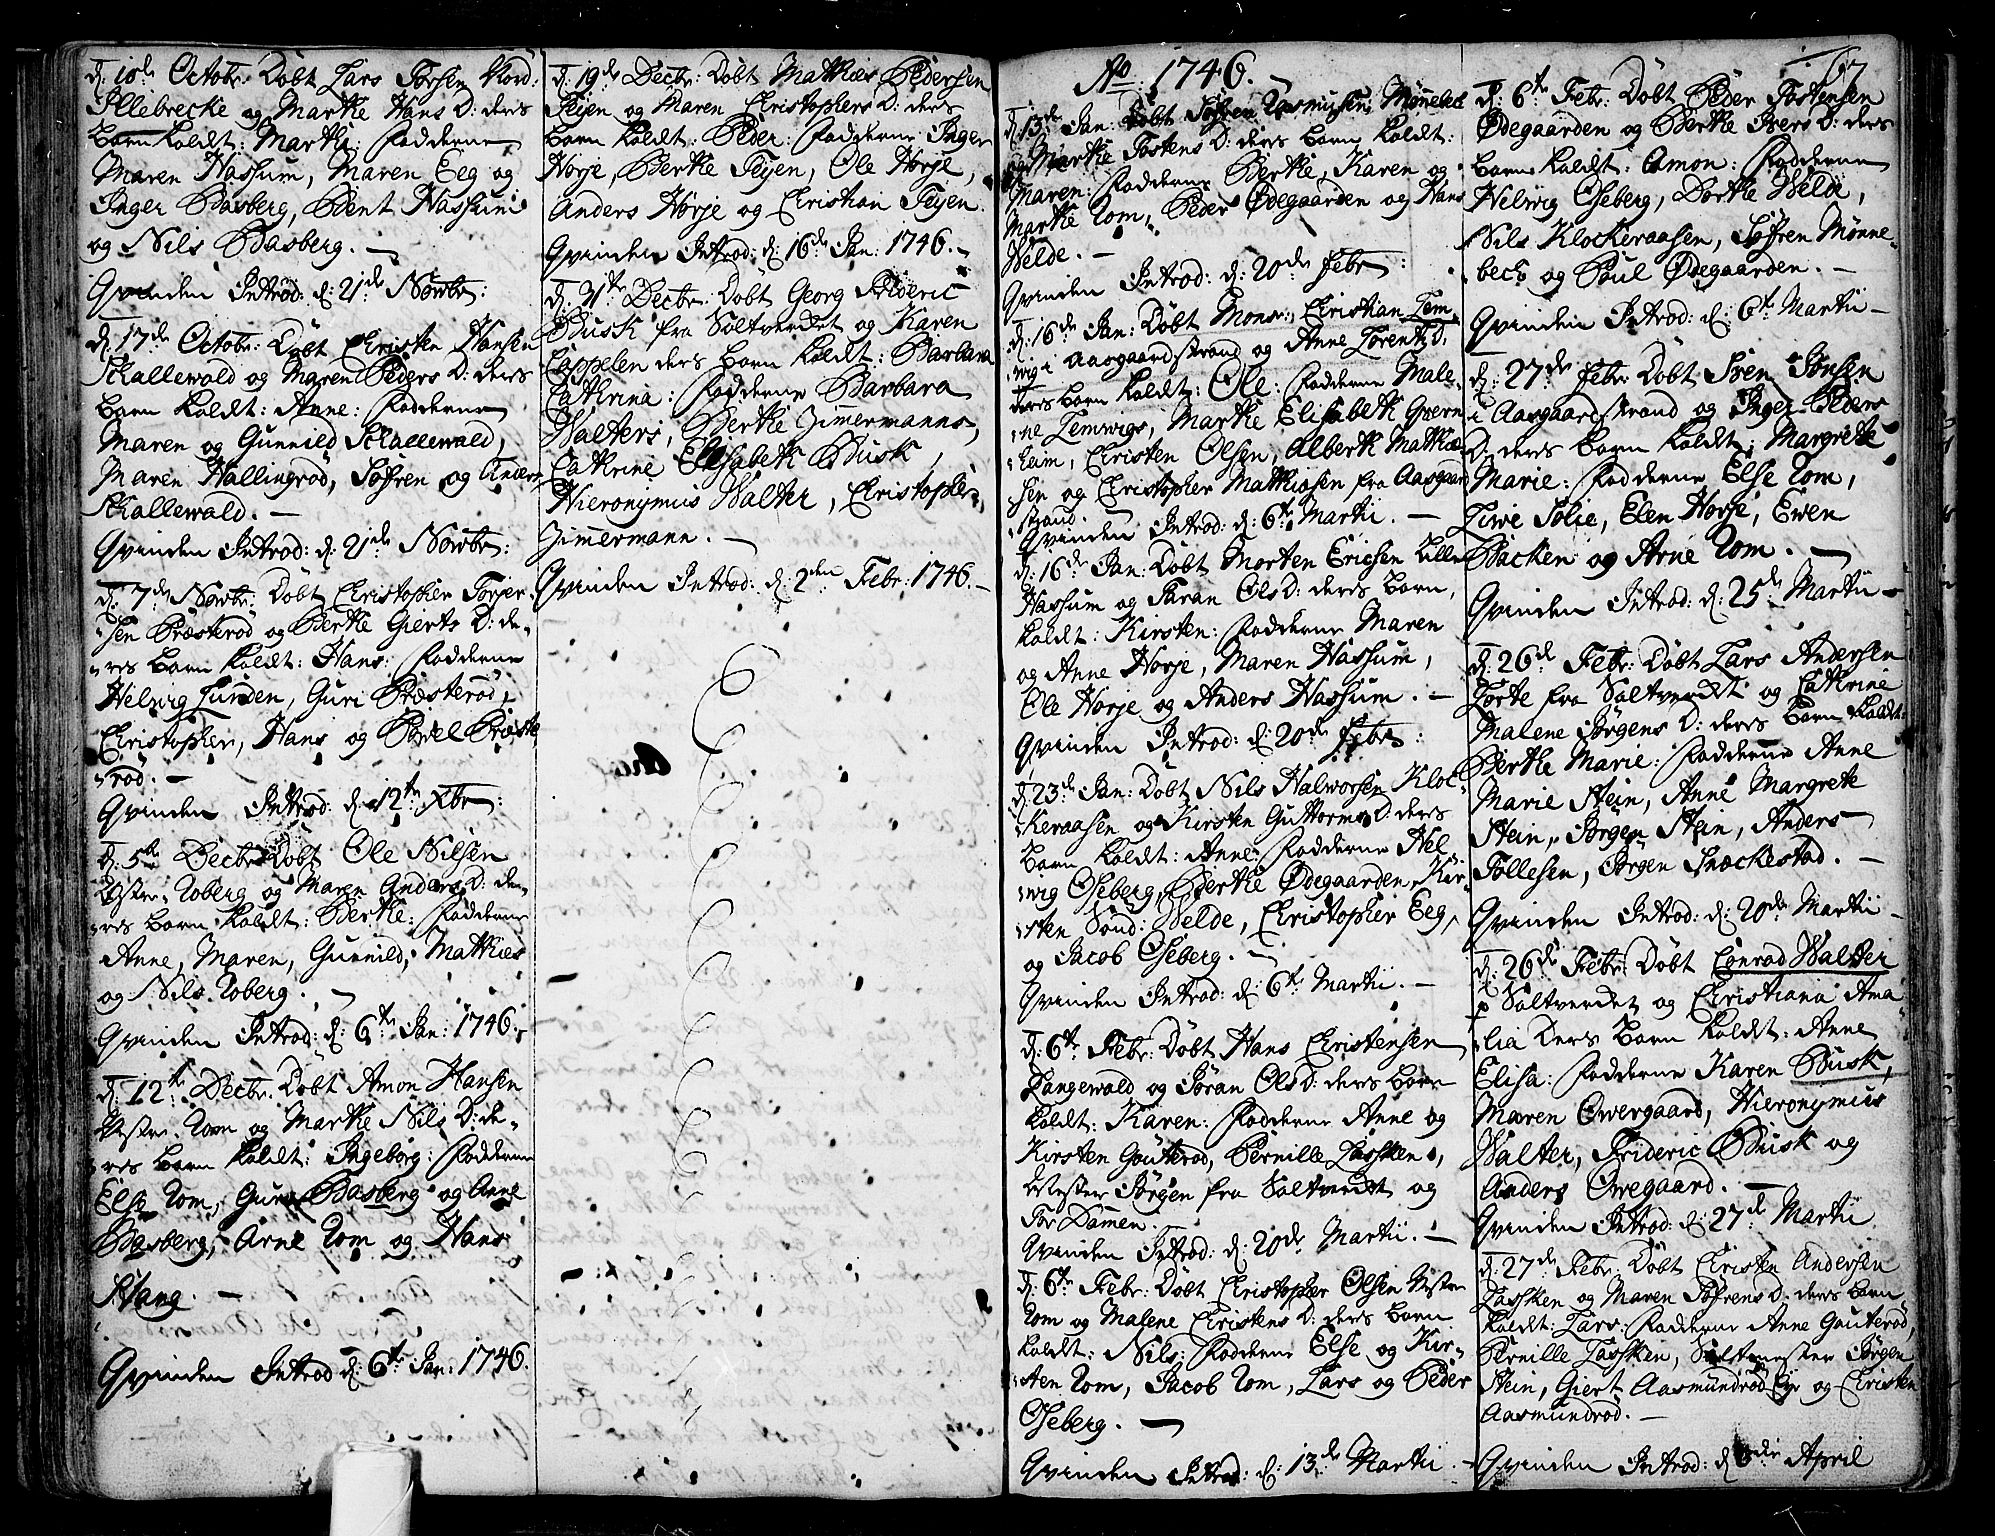 d: 10de Octobr: Döbt Lars Torsen Nord:
Illebrecke og Marthe Hans D: ders
barn kaldt: Marthe: Fadderne
Maren Hassum, Maren Eeg og
Inger Basberg, Bent Hassum
og Nils Basberg. —
Qvinden Introd: d: 21de Novbr:
d: 17de Octobr: Döbt Christen Hansen
Skallewald og Maren Peders D: ders
barn kaldt: Anne: Fadderne
Maren og Gunnild Skallewald,
Maren Hallingrod, Søfren og Anders
Skallewald. —
Qvinden Introd: d: 21de Novbr:
d: 7de Novbr: Döbt Christopher Torjer-
sen Præsterød og Berthe Gierts D: de-
res barn kaldt: Hans: Fadderne
Helwig Lunden, Guri Præsterød,
Christopher, Hans og Povel Præste
rød. —
Qvinden Introd: d: 12te Xbr:
d: 5te Decbr: Döbt Ole Nilsen
Østre Roberg og Maren Anders D: de-
res barn kaldt: Berthe: Fadderne
Anne, Maren, Gunnild, Mathias
og Nils Roberg. —
Qvinden Introd: d: 6te Jan: 1746.
d: 12te Decbr: Döbt Amon Hansen
Vestre Rom og Marthe Nils D: de-
res barn kaldt: Ingeborg: Fadderne
Else Rom, Guri Basberg og Anne
Basberg, Arne Rom og Hans
Stang. —
Qvinden Introd: d: 6te Jan: 1746.
d: 19de Decbr: Döbt Mathias Pedersen
Teyen og Maren Christophers D: ders
barn kaldt: Peder: Fadderne Inger
Horje, Berthe Teyen, Ole Horje,
Anders Horje og Christian Teyen.
Qvinden Introd: d: 16de Jan: 1746. —
d: 31te Decbr: Döbt Georg Frideric
Busk fra Saltverdet og Karen
Cappelen ders barn kaldt: Barbara
Cathrina: Fadderne Barbara
Walters, Berthe Zimermanns,
Cathrine Elisabeth Busk,
Hieronymus Walter, Christopher
Zimermann. —
Qvinden Introd: d: 2den Febr: 1746. —
Ao 1746.
d: 13de Jan: Döbt Søfren Rasmusen Mønnebeck
og Marthe Tostens D: ders barn kaldt:
Maren: Fadderne Berthe, Karen og
Marthe Rom, Peder Ødegaarden og Hans
Velde. —
Qvinden Introd: d: 20de Febr:
d: 16de Jan: Döbt Monsr: Christian Lem-
wig i Aasgaardstrand og Anne Lorents D.
ders barn kaldt: Ole: Fadderne Male-
ne Lemwigs, Marthe Elisabeth Gvern
heim, Christen Olsen, Albert Mathia
sen og Christopher Mathiasen fra Aasgaard
strand.
Qvinden Introd: d: 6te Martii. —
d: 16de Jan: Döbt Morten Ericsen Lille
Hassum og Taran Ols D: ders barn,
kaldt: Kirsten: Fadderne Maren
og Anne Horje, Maren Hassum,
Ole Horje og Anders Hassum. —
Qvinden Introd: d: 20de Febr:
d: 23de Jan: Döbt Nils Halworsen Kloc-
keraasen og Kirsten Guttorms D: ders
barn kaldt: Anne: Fadderne Hel
wig Oseberg, Berthe Ødegaarden, Kir-
sten Sønd: Velde, Christopher Eeg,
og Jacob Oseberg. —
Qvinden Introd: d: 6te Martii. —
d: 6te Febr: Döbt Hans Christensen
Langewald og Søran Ols D: ders barn
kaldt: Karen: Fadderne Anne og
Kirsten Gouterød, Pernille Lassken,
Mester Jørgen fra Saltverdet og
Tor Damen.
Qvinden Introd: d: 20de Martii. —
d: 6te Febr: Döbt Christopher Olsen Vestre
Rom og Malene Christens D: ders barn
kaldt: Nils: Fadderne Else og Kir-
sten Rom, Jacob Rom, Lars og Peder
Oseberg. —
Qvinden Introd: d: 13de Martii. —
67
d: 6te Febr: Döbt Peder Tostensen
Ødegaarden og Berthe Ivers D: ders
barn kaldt: Amon: Fadderne
Helwig Oseberg, Dorthe Velde,
Nils Klockeraasen, Søfren Mønne-
beck og Poul Ødegaarden. —
Qvinden Introd: d: 6te Martii —
d: 27de Febr: Döbt Iven Jonsen
i Aasgaardstrand og Inger Peders
D: ders barn kaldt: Margrete
Marie: Fadderne Else Rom,
Live Solie, Elen Horje, Ewen
Backen og Arne Rom. —
Qvinden Introd: d: 25de Martii —
d: 26de Febr: Döbt Lars Andersen
Lorte fra Saltverdet og Cathrine
Malene Jørgens D: ders barn kaldt:
Berthe Marie: Fadderne Anne
Marie Stein, Anne Margrete
Stein, Jørgen Stein, Anders
Tollesen, Jørgen Snæckestad. —
Qvinden Introd: d: 20de Martii —
d: 26de Febr: Döbt Conrad Walter
p Saltverdet og Christiana Ama
lia Ders barn kaldt: Anne
Elisa: Fadderne Karen Busk,
Maren Owergaard, Hieronymus
Walter, Frideric Busk og
Anders Owegaard. —
Qvinden Introd: d: 27de Martii
d: 27de Febr: Döbt Christen Andersen
Lassken og Maren Søfrens D: ders barn
kaldt: Lars: Fadderne Anne Gouterød,
Pernille Lassken, Saltmester Jørgen
Stein, Giert Aasmundrød Eyr og Christen
Aasmundrød. —
Qvinden Introd: d April